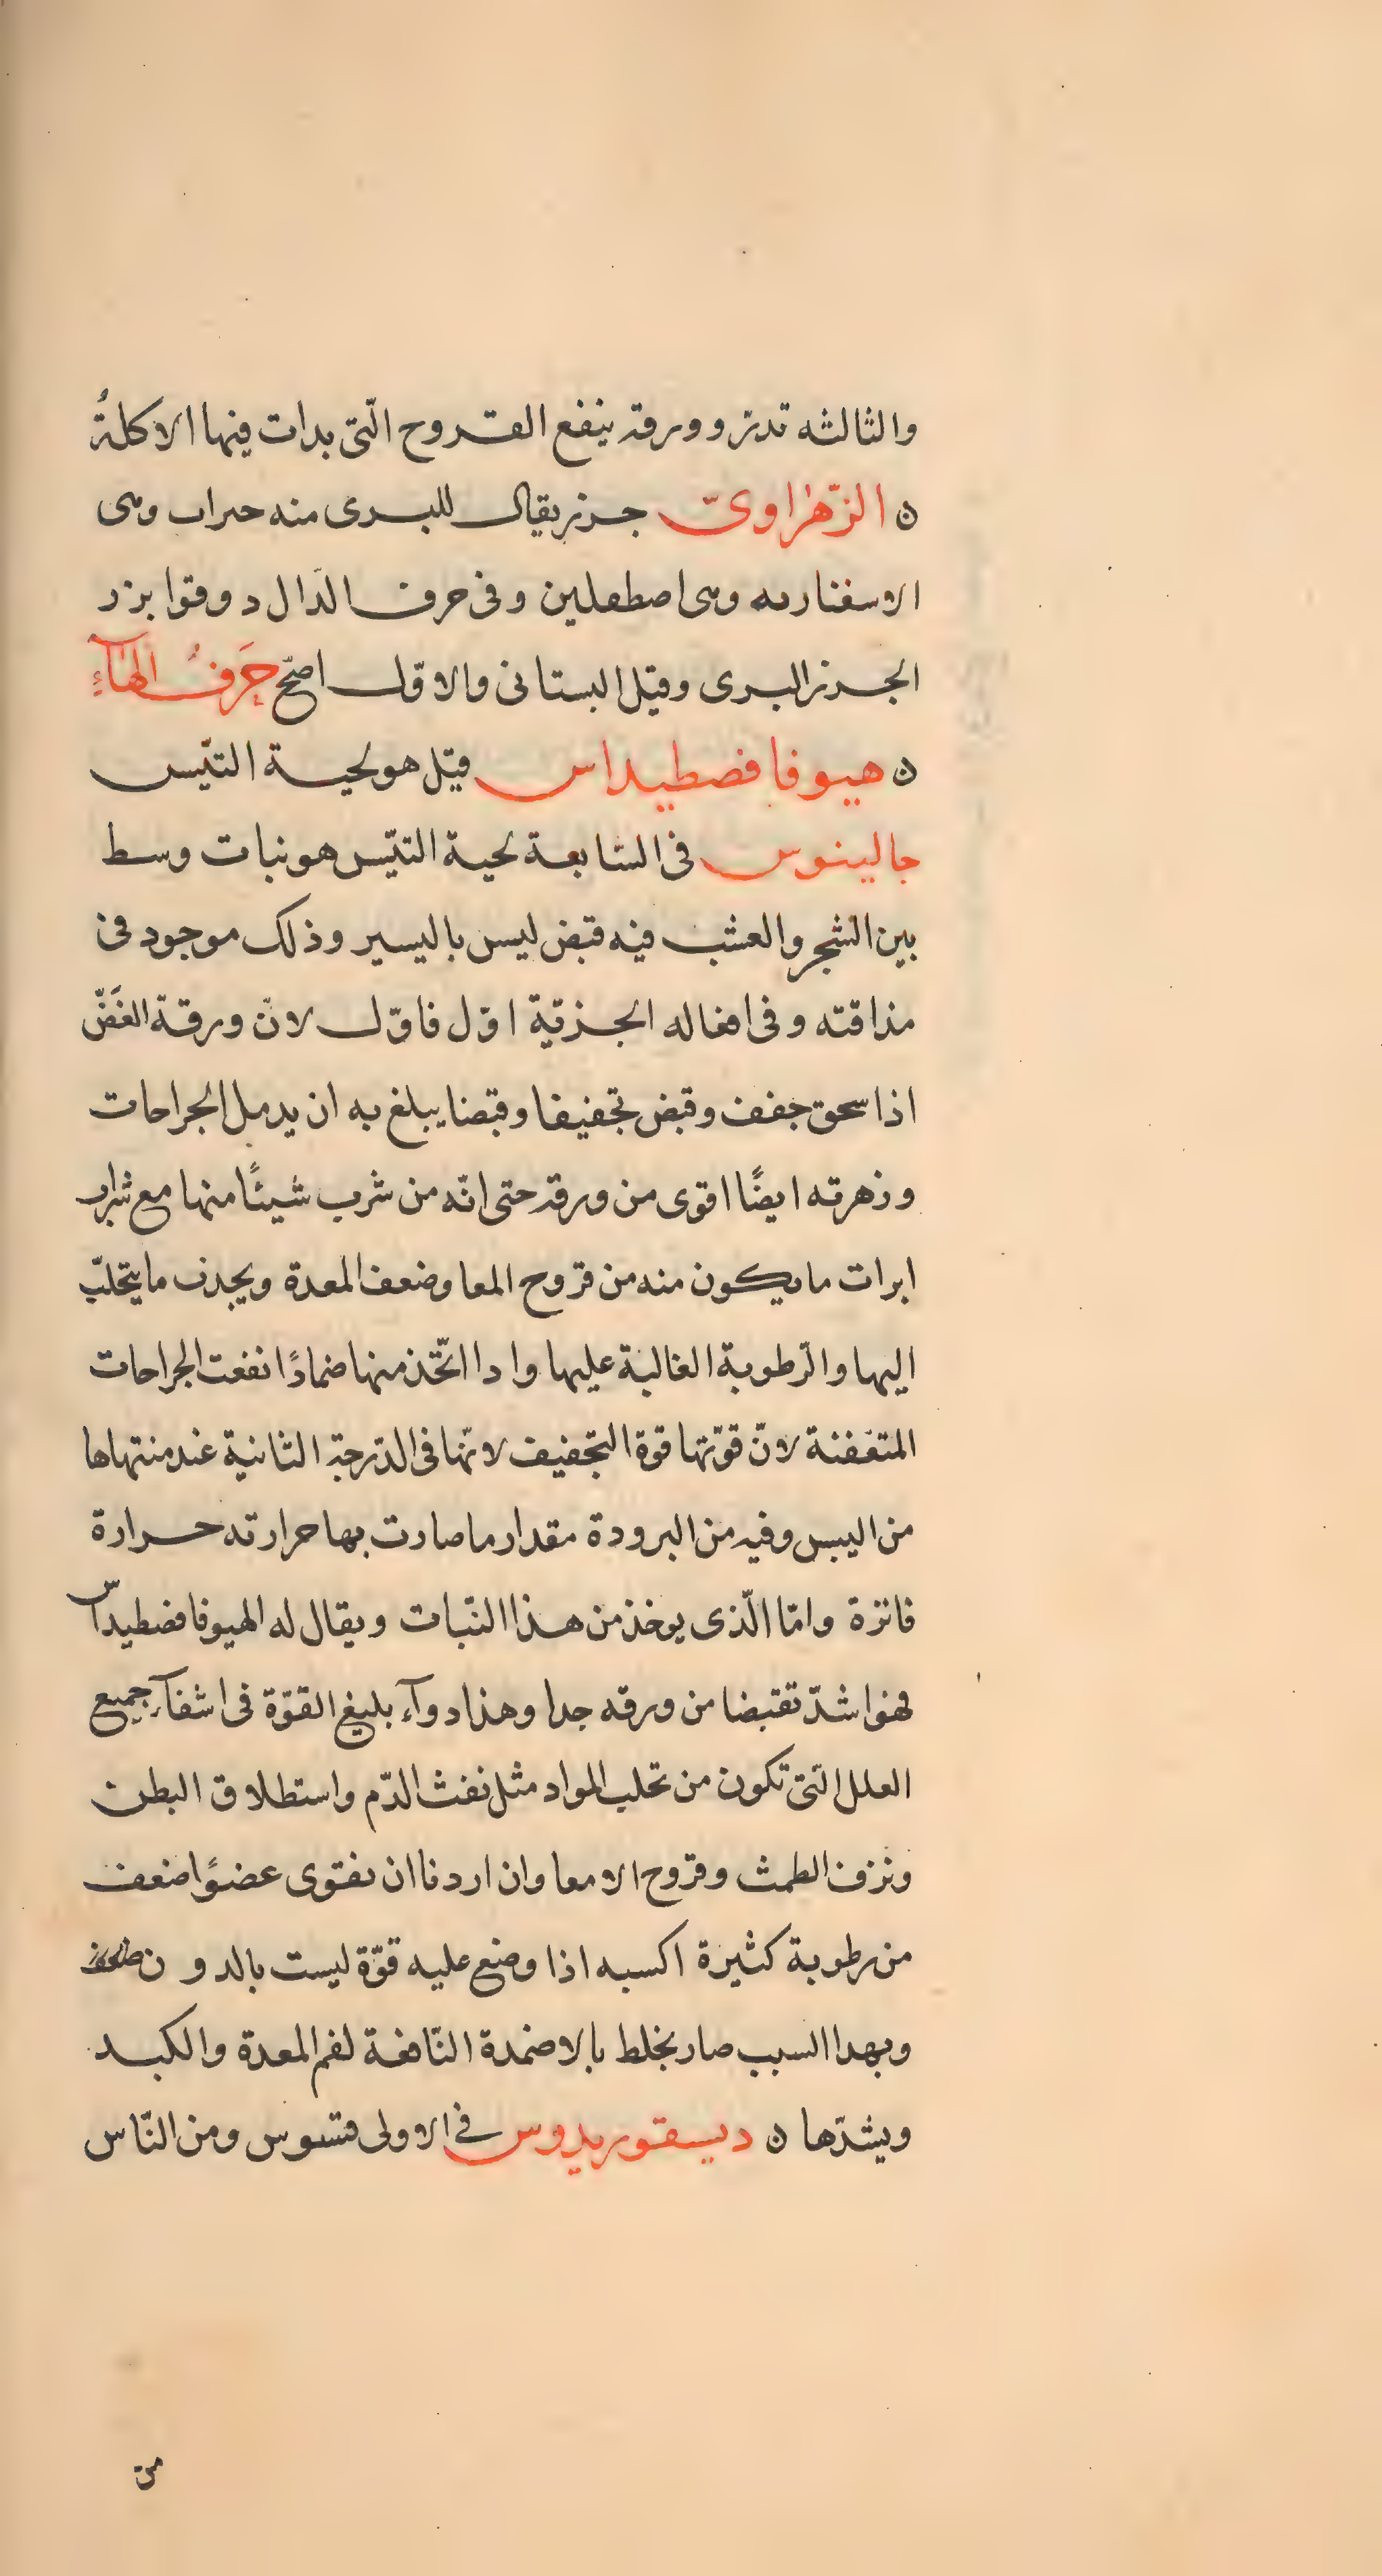 والثالثه تدرّ وورقه ينفع القروح الّتى بدات فيها الاكلةُ
ن الزّهراوىّ جزر يقال للبرى منه حراب وهى
الاسفناريه وهى اصطفلين وفى حرف الدّال دوقوا بزر
الجزر البرى وقيل البستانى والاوّل اصحّ حَرفُ الهآءِ
ن هيوفافصطيداس قيّل هو لحية التيّس
جالينوس فى السّابعة لحية التيّس هو نبات وسط
بين الشجر والعشب فيه قبض ليس باليسير وذلك موجود فى
مذاقته وفى افعاله الجزئية اوّل فاوّل لانّ ورقة الغَضّ
اذا سحق جفف وقبض تجفيفا وقبضا يبلغ به ان يدمل الجراحات
وزهرته ايضًا اقوى من ورقه حتى انّه من شرب شيئًا منها مع شراب
ابرات ما يكون منه من قروح المعا وضعف المعدة ويجذب ما يتحلّب
اليها والرّطوبة الغالبة عليها وادا اتّخذ منها ضمادًا نفعت الجراحات
المتعفنة لانّ قوّتها قوة التجفيف لانّها فى الدّرجة الثانية عند منتهاها
من اليبس وفيه من البرودة مقدار ما صارت بها حرارته حرارة
فاترة وامّا الّذى يوخذ من هذا النّبات ويقال له الهيوفافصطيداس
فهو اشدّ تقبضا من ورقه جدا وهذا دوآء بليغ القوّة فى اشفآء جميع
العلل الّتى تكون من تحلب المواد مثل نفث الدّم واستطلاق البطن
ونزف الطمث وقروح الامعا وان اردنا ان نقوى عضوًا ضعف
من رطوبة كثيرة اكسبه اذا وضع عليه قوّة ليست بالدون
وبهدا السبب صار يخلط بالاضمدة النّافعة لفم المعدة والكبد
ويشدّها ن ديسقوريدوس فى الاولى قستوس ومن النّاس